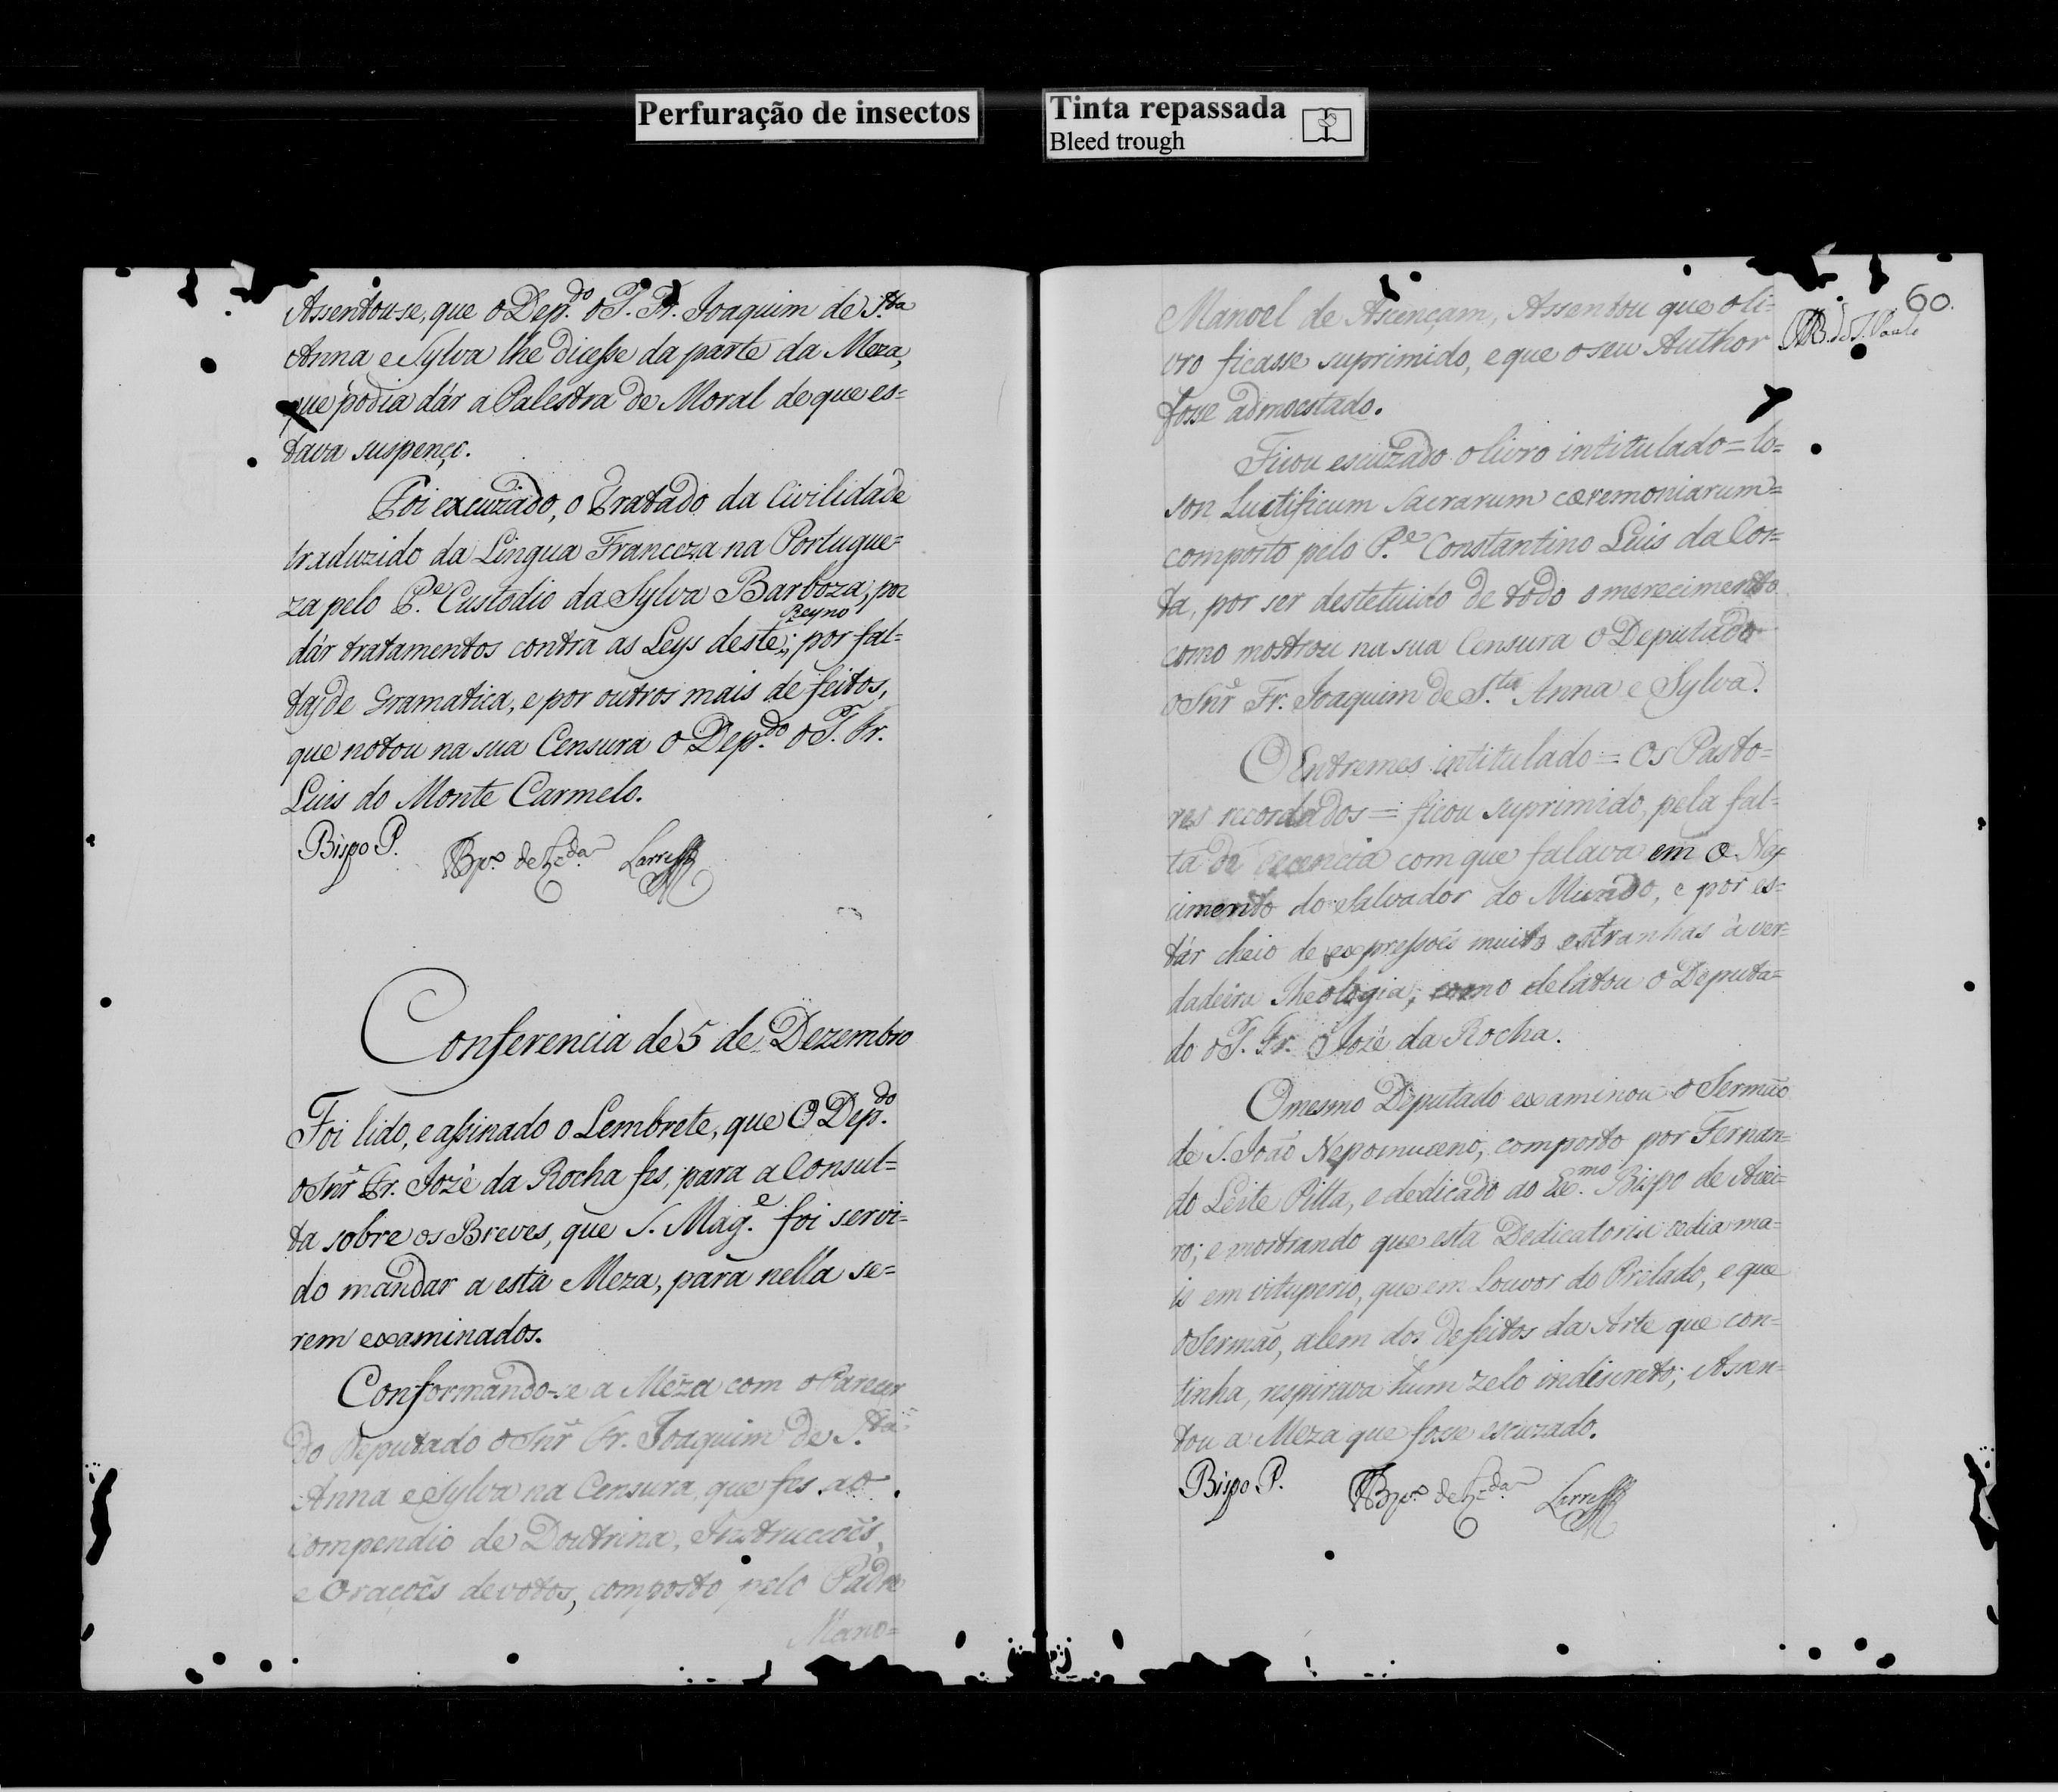 Perfuração de insectos
Tinta repassada
Bleed trough
Assentou-se, que o Dep.do o P. Fr. Joaquim de S.ta
Anna e Sylva lhe dicesse da parte da Meza,
que podia dár a Palestra de Moral de que es=
tava suspenço.
Foi excuzado, o Tratado da Civilidade
traduzido da Lingua Franceza na Portugue=
za pelo P.e Custodio da Sylva Barboza, por
Reyno
dár tratamentos contra as Leys deste; por fal=
tas de Gramatica, e por outros mais defeitos,
que notou na sua Censura o Dep.do o P. Fr.
Luis do Monte Carmelo.
Bispo P.
Conferencia de 5 de Dezembro
Foi lido, e assinado o Lembrete, que O Dep.do
o Snr Fr. Jozé da Rocha fes, para a Consul=
ta sobre os Breves, que S. Mag.e foi servi=
do mandar a esta Meza, para nella se=
rem examinados.
Conformando-se a Meza com o Parecer
do Deputado o Snr Fr. Joaquim de S.ta
Anna e Sylva na Censura, que fes ao
compendio de Doutrina, Instrucçoẽs,
e Oraçoẽs devotos, composto pelo Padre
Mano=
60.
Manoel de Ascençam, Assentou que o li=
vro ficasse suprimido, e que o seu Author
fosse admoestado.
Ficou escuzado o livro intitulado = Io=
son Lustificum Sacrarum cæremoniarum=
composto pelo P.e Constantino Luis da Cos=
ta, por ser destetuido de todo o merecimento
como mostrou na sua Censura o Deputado
o Snr Fr. Joaquim de S.ta Anna e Sylva.
O Entremes intitulado = Os Pasto=
res recordados = ficou suprimido, pela fal=
ta de decencia com que falava em o Nas
cimento do Salvador do Mundo, e por es=
tár cheio de expressoẽs muito estranhas à ver=
dadeira Theologia; como delatou o Deputa=
do o P. Fr. Jozé da Rocha.
O mesmo Deputado examinou o Sermão
de S. João Nepomuceno, composto por Fernan=
do Leite Pitta, e dedicado ao Ex.mo Bispo de Avei=
ro; e mostrando que esta Dedicatoria cedia ma=
is em vituperio, que em Louvor do Prelado, e que
o Sermão, alem dos defeitos da Arte que con=
tinha, respirava hum zelo indiscreto; Assen=
tou a Meza que fosse escuzado.
Bispo P.